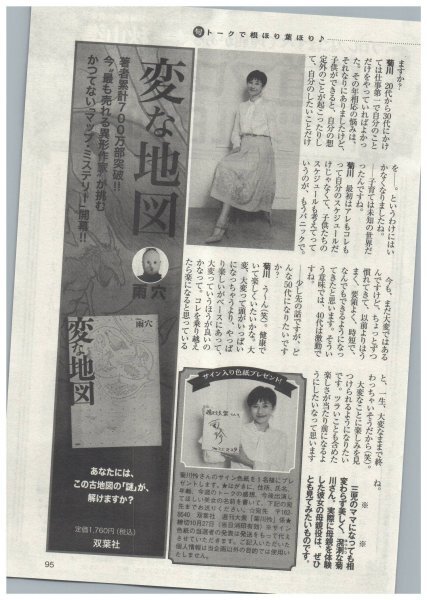 旬トークで根ほり葉ほり♪
ますか?
菊川 20代から30代にかけ
ては仕事第一で自分のこと
だけをやっていればよかっ
た。その年相応の悩みは、
それなりにありましたけど、
子供ができると、自分の想
定外のことが起こったりし
て、自分のしたいことだけ
を――。というわけにはい
かなくなりましたね。
――子育ては未知の世界だ
ったんですね。
菊川 最初はアレもコレも
って自分のスケジュールだ
けじゃなくて、子供たちの
スケジュールも考えてって
いうのが、もうパニックで。
今も、まだ大変ではある
んですけど、ちょっとずつ
慣れてきて、以前よりはう
まく、要領よく、時短で、
なんでもできるようになっ
てきたと思います。そうい
う意味では、40代は激動で
すね。
――少し先の話ですが、ど
んな50代になりたいです
か?
菊川 う〜ん(笑)。健康で
いて楽しくいたいかな。大
変、大変って頭がいっぱい
になっちゃうより、やっぱ
り楽しいがベースにあって、
大変っていうほうが良いの
かなって。コレを乗り越え
たら楽になると思っている
と、一生、大変なままで終
わっちゃいそうだから(笑)。
大変なことに楽しみを見
つけられるようになりたい
です。ツラいことも含めた
楽しさが当たり前になるよ
うにしたいなって思います
ね。
※ ※
三児のママになっても相
変わらず美しく、溌溂な菊
川さん。実際に母親を体験
した彼女の母親役は、ぜひ
とも見てみたいものです。
サイン入り色紙プレゼント!
菊川怜さんのサイン色紙を1名様にプレ
ゼントします。★はがきに、住所、氏名、
年齢、今週のトークの感想、今後出演し
てほしい美女の名前を書いて、下記の宛
先までお送りください。◇宛先 〒162-
8540 双葉社 週刊大衆「菊川怜」係★
締切10月27日(当日消印有効) サイン
色紙の当選者の発表は発送をもって代え
させていただきます。ご記入いただいた
個人情報は当企画以外の目的では使用い
たしません。
著者累計700万部突破!!
今、“最も売れる異形作家”が挑む
かつてない「マップ・ミステリー」開幕!!
変な地図
雨穴
雨穴
変な地図
あなたには、
この古地図の「謎」が、
解けますか?
定価1,760円(税込)
双葉社
95